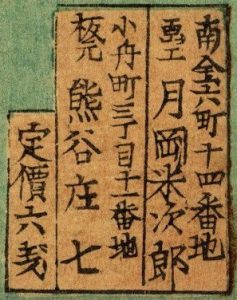 南金六町十四番地
画工 月岡米次郎
小舟町三丁目十一番地
板元 熊谷庄七
定價六銭